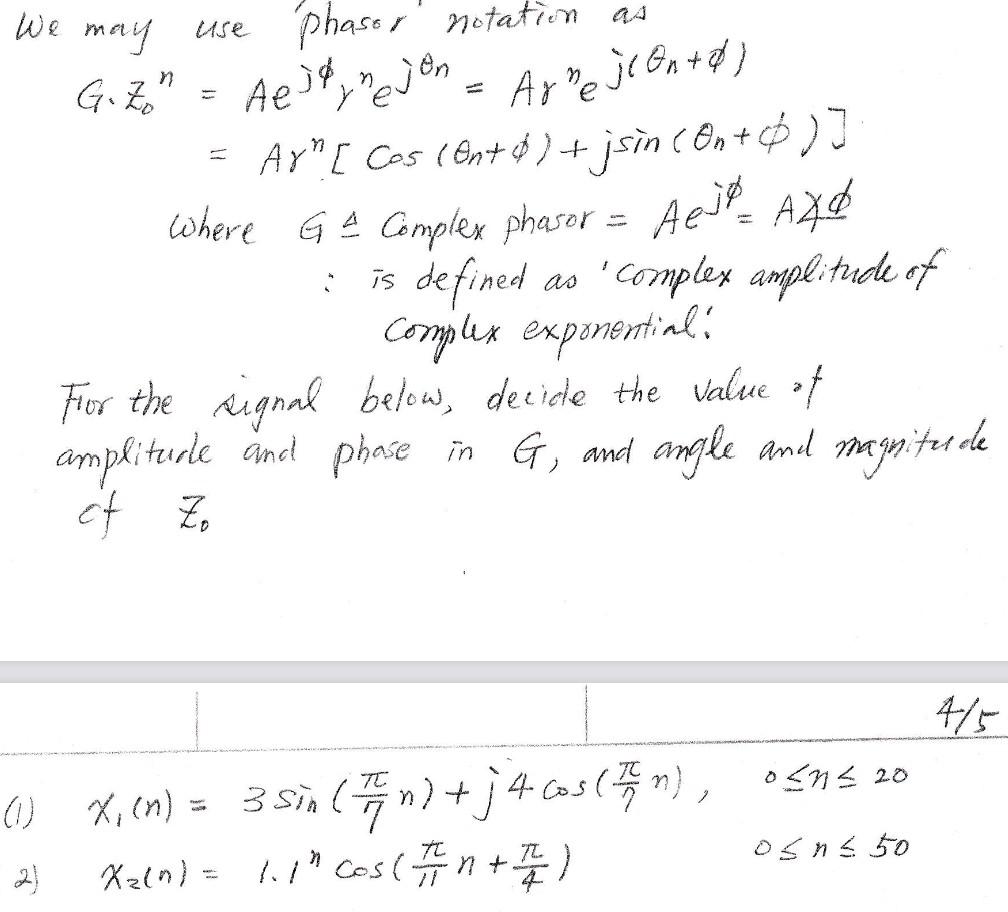 We may use 'phasor' notation as
G·Z₀ⁿ = Ae^{jφ}rⁿe^{jθn} = Arⁿe^{j(θn+φ)}
= Arⁿ[ Cos (θn+φ) + jsin (θn+φ)]
Where G ≜ Complex phasor = Ae^{jφ} = A∡φ
: is defined as 'complex amplitude of
Complex exponential.'
For the signal below, decide the value of
amplitude and phase in G, and angle and magnitude
of Z₀
4/5
(1) X₁(n) = 3 sin (π/7 n) + j4 cos (π/7 n), 0≤n≤ 20
2) X₂(n) = 1.1ⁿ cos (π/11 n + π/4) 0≤n≤ 50